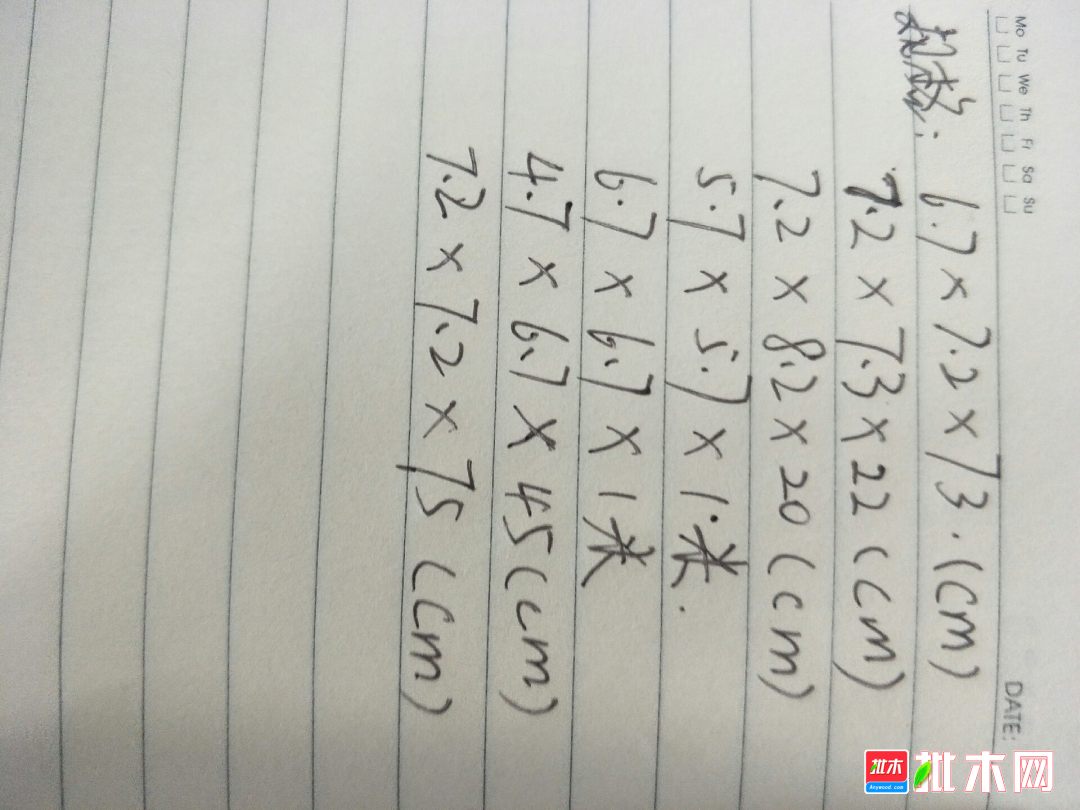 Mo Tu We Th Fr Sa Su
DATE:
6.7×7.2×73.(cm)
7.2×7.3×22(cm)
7.2×8.2×20(cm)
5.7×5.7×1米.
6.7×6.7×1米
4.7×6.7×45(cm)
7.2×7.2×75(cm)
批木 批木网
Anywood.com